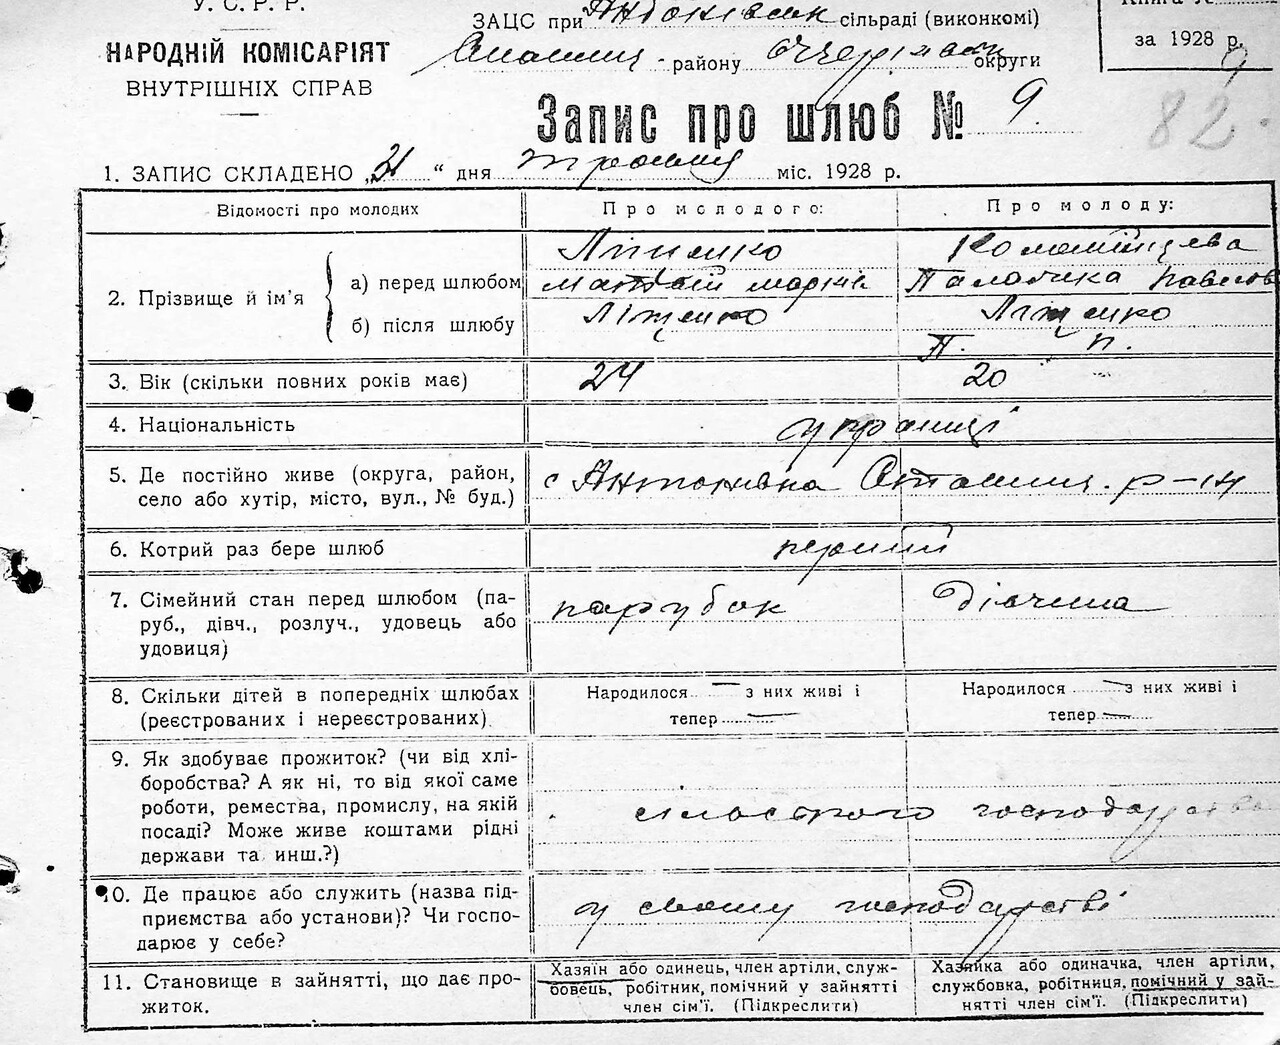 У. С. Р. Р.
НАРОДНІЙ КОМІСАРІЯТ
ВНУТРІШНІХ СПРАВ
ЗАЦС при Антонівск сільраді (виконкомі)
району округи
за 1928 р.
9
Запис про шлюб № 9.
82.
1. ЗАПИС СКЛАДЕНО „21“ дня травня міс. 1928 р.
Відомості про молодих
Про молодого:
Про молоду:
2. Прізвище й ім’я
а) перед шлюбом
б) після шлюбу
Коломійцева
Палажка Павлов
П. П.
3. Вік (скільки повних років має)
24
20
4. Національність
українці
5. Де постійно живе (округа, район,
село або хутір, місто, вул., № буд.)
с Антонівна р-ну
6. Котрий раз бере шлюб
перший
7. Сімейний стан перед шлюбом (па-
руб., дівч., розлуч., удовець або
удовиця)
парубок
дівчина
8. Скільки дітей в попередніх шлюбах
(реєстрованих і нереєстрованих).
Народилося — з них живі і
тепер —
Народилося — з них живі і
тепер —
9. Як здобуває прожиток? (чи від хлі-
боробства? А як ні, то від якої саме
роботи, ремества, промислу, на якій
посаді? Може живе коштами рідні
держави та инш.?)
сільського господарства
10. Де працює або служить (назва під-
приємства або установи)? Чи госпо-
дарює у себе?
у своєму господарстві
11. Становище в зайнятті, що дає про-
житток.
Хазяїн або одинець, член артіли, служ-
бовець, робітник, помічний у зайнятті
член сім’ї. (Підкреслити)
Хазяйка або одиначка, член артіли,
службовка, робітниця, помічний у зай-
нятті член сім’ї. (Підкреслити)